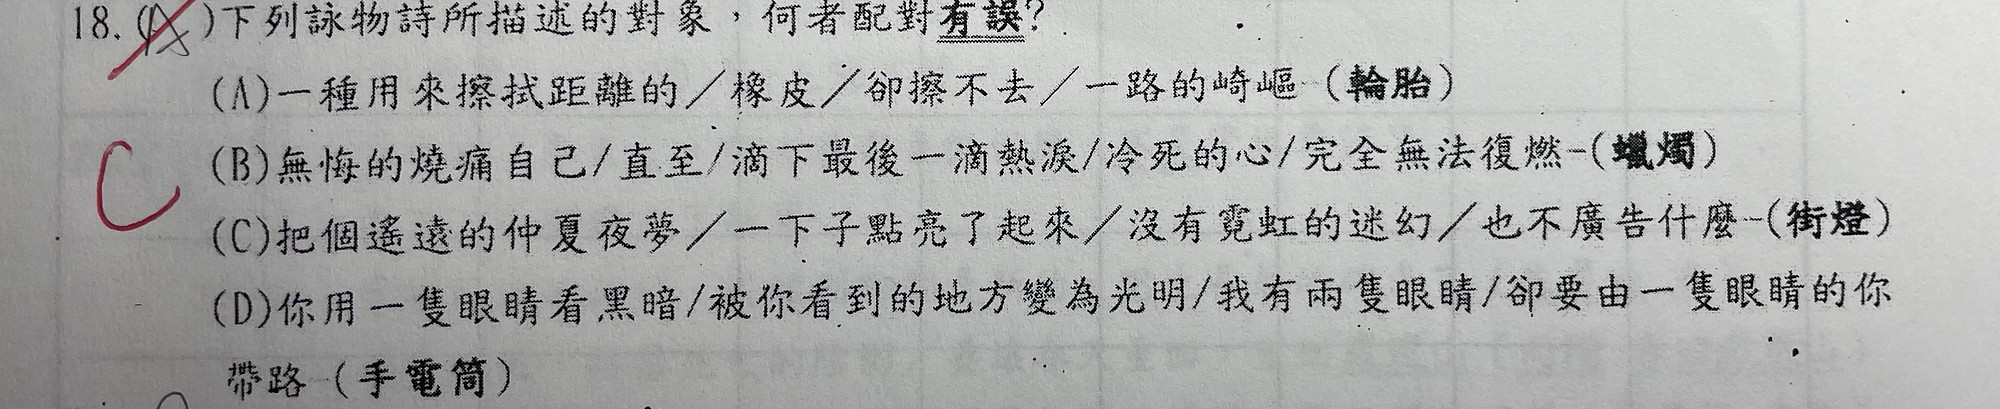 18.(A)下列詠物詩所描述的對象，何者配對有誤?
(A)一種用來擦拭距離的／橡皮／卻擦不去／一路的崎嶇（輪胎）
(B)無悔的燒痛自己/直至/滴下最後一滴熱淚/冷死的心/完全無法復燃（蠟燭）
C
(C)把個遙遠的仲夏夜夢／一下子點亮了起來／沒有霓虹的迷幻／也不廣告什麼（街燈）
(D)你用一隻眼睛看黑暗/被你看到的地方變為光明/我有兩隻眼睛/卻要由一隻眼睛的你
帶路（手電筒）